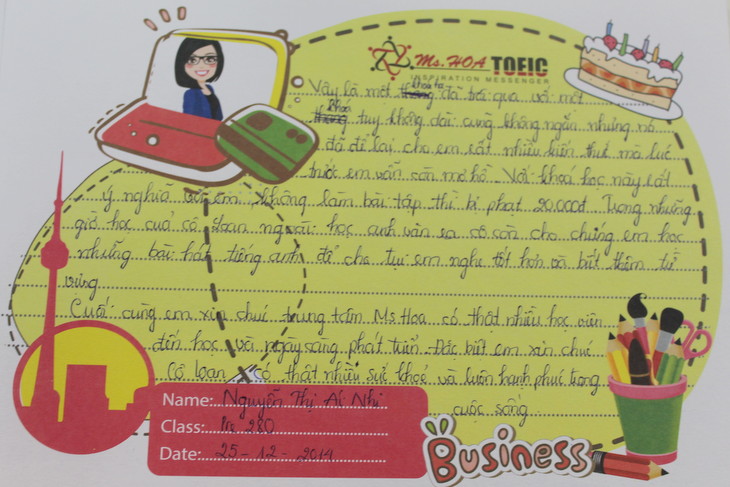 Ms. HOA TOEIC
INSPIRATION MESSENGER
Vậy là một khóa đã trôi qua với một
khoá tuy không dài cũng không ngắn nhưng nó
đã để lại cho em rất nhiều kiến thức mà lúc
trước em vẫn còn mơ hồ. Với khoá học này rất
ý nghĩa với em, không làm bài tập thì bị phạt 20.000đ. Trong những
giờ học của cô Loan ngoài học anh văn ra cô còn cho chúng em học
những bài hát tiếng anh để cho tụi em nghe tốt hơn và biết thêm từ
vựng
Cuối cùng em xin chúc trung tâm Ms Hoa có thật nhiều học viên
đến học và ngày càng phát triển. Đặc biệt em xin chúc
Cô Loan có thật nhiều sức khoẻ và luôn hạnh phúc trong
cuộc sống
Name: Nguyễn Thị Ái Nhi
Class: Pre 280
Date: 25-12-2014
Business